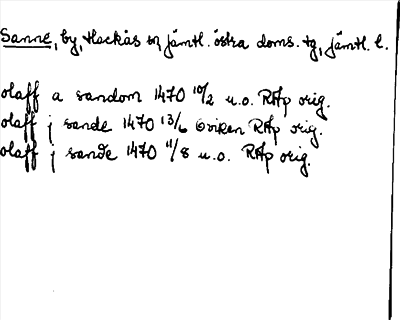 Sanne, by, Hackås sn, jämtl. östra doms. tg, jämtl. l.
olaff a sandom 1470 10/2 u.o. RAp orig.
olaff j sande 1470 13/6 Oviken RAp orig.
olaff j sande 1470 11/8 u.o. RAp orig.